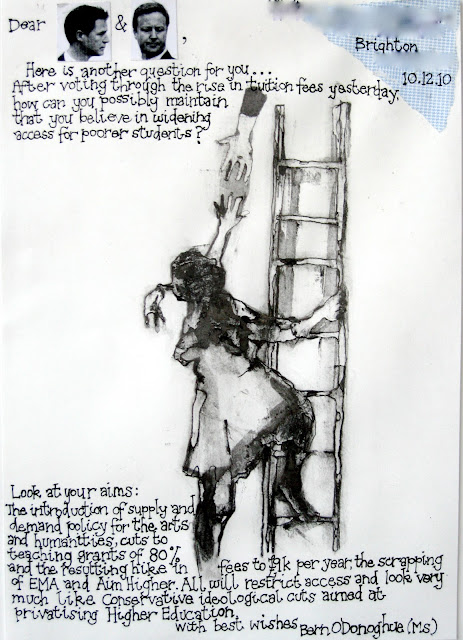 Dear & ,
Brighton
10.12.10
Here is another question for you....
After voting through the rise in tuition fees yesterday,
how can you possibly maintain
that you believe in widening
access for poorer students?
Look at your aims:
The introduction of supply and
demand policy for the arts
and humanities, cuts to
teaching grants of 80%
and the resulting hike in fees to £9k per year, the scrapping
of EMA and Aim Higher. All will restrict access and look very
much like Conservative ideological cuts aimed at
privatising Higher Education.
With best wishes Bern O'Donoghue (Ms)